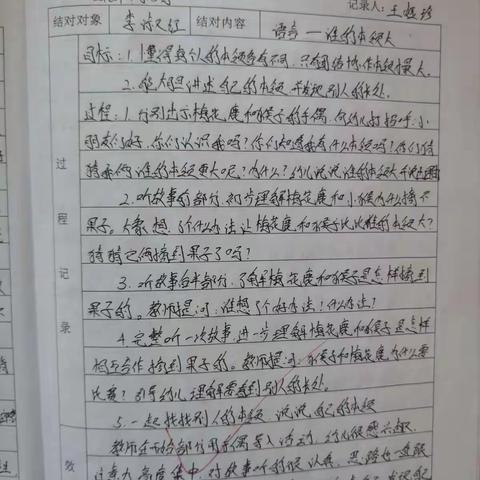 记录人：王
结对对象 李 红 结对内容 语言—谁的本领大
目标：1.懂得每个人的本领各有不同，只有团结协作本领最大。
2.能大胆讲述自己的本领，并发现别人的长处。
过程：1.分别出示梅花鹿和猴子的手偶，向幼儿打招呼：小
朋友们好，你们认识我吗？你们知道我有什么本领吗？你们猜
猜我俩谁的本领更大呢？为什么？幼儿说说谁的本领大
2.听故事前部分，初步理解梅花鹿和小猴为什么摘不
果子。大象想了个什么办法让梅花鹿和猴子比比谁的本领大？
猜猜它俩摘到果子了吗？
3.听故事后半部分，了解梅花鹿和猴子是怎样摘到
果子的。教师提问：谁想了个好办法？什么办法？
4.完整听一次故事，进一步理解梅花鹿和猴子是怎样
相互合作摘到果子的。教师提问：小猴子和梅花鹿为什么要
比赛？引导幼儿理解要看到别人的长处。
5.一起找找别人的本领，说说自己的本领
教师在开始部分用手偶导入活动，幼儿很感兴趣
注意力高度集中，对故事听的很认真，思路也一直跟
过程记录
效